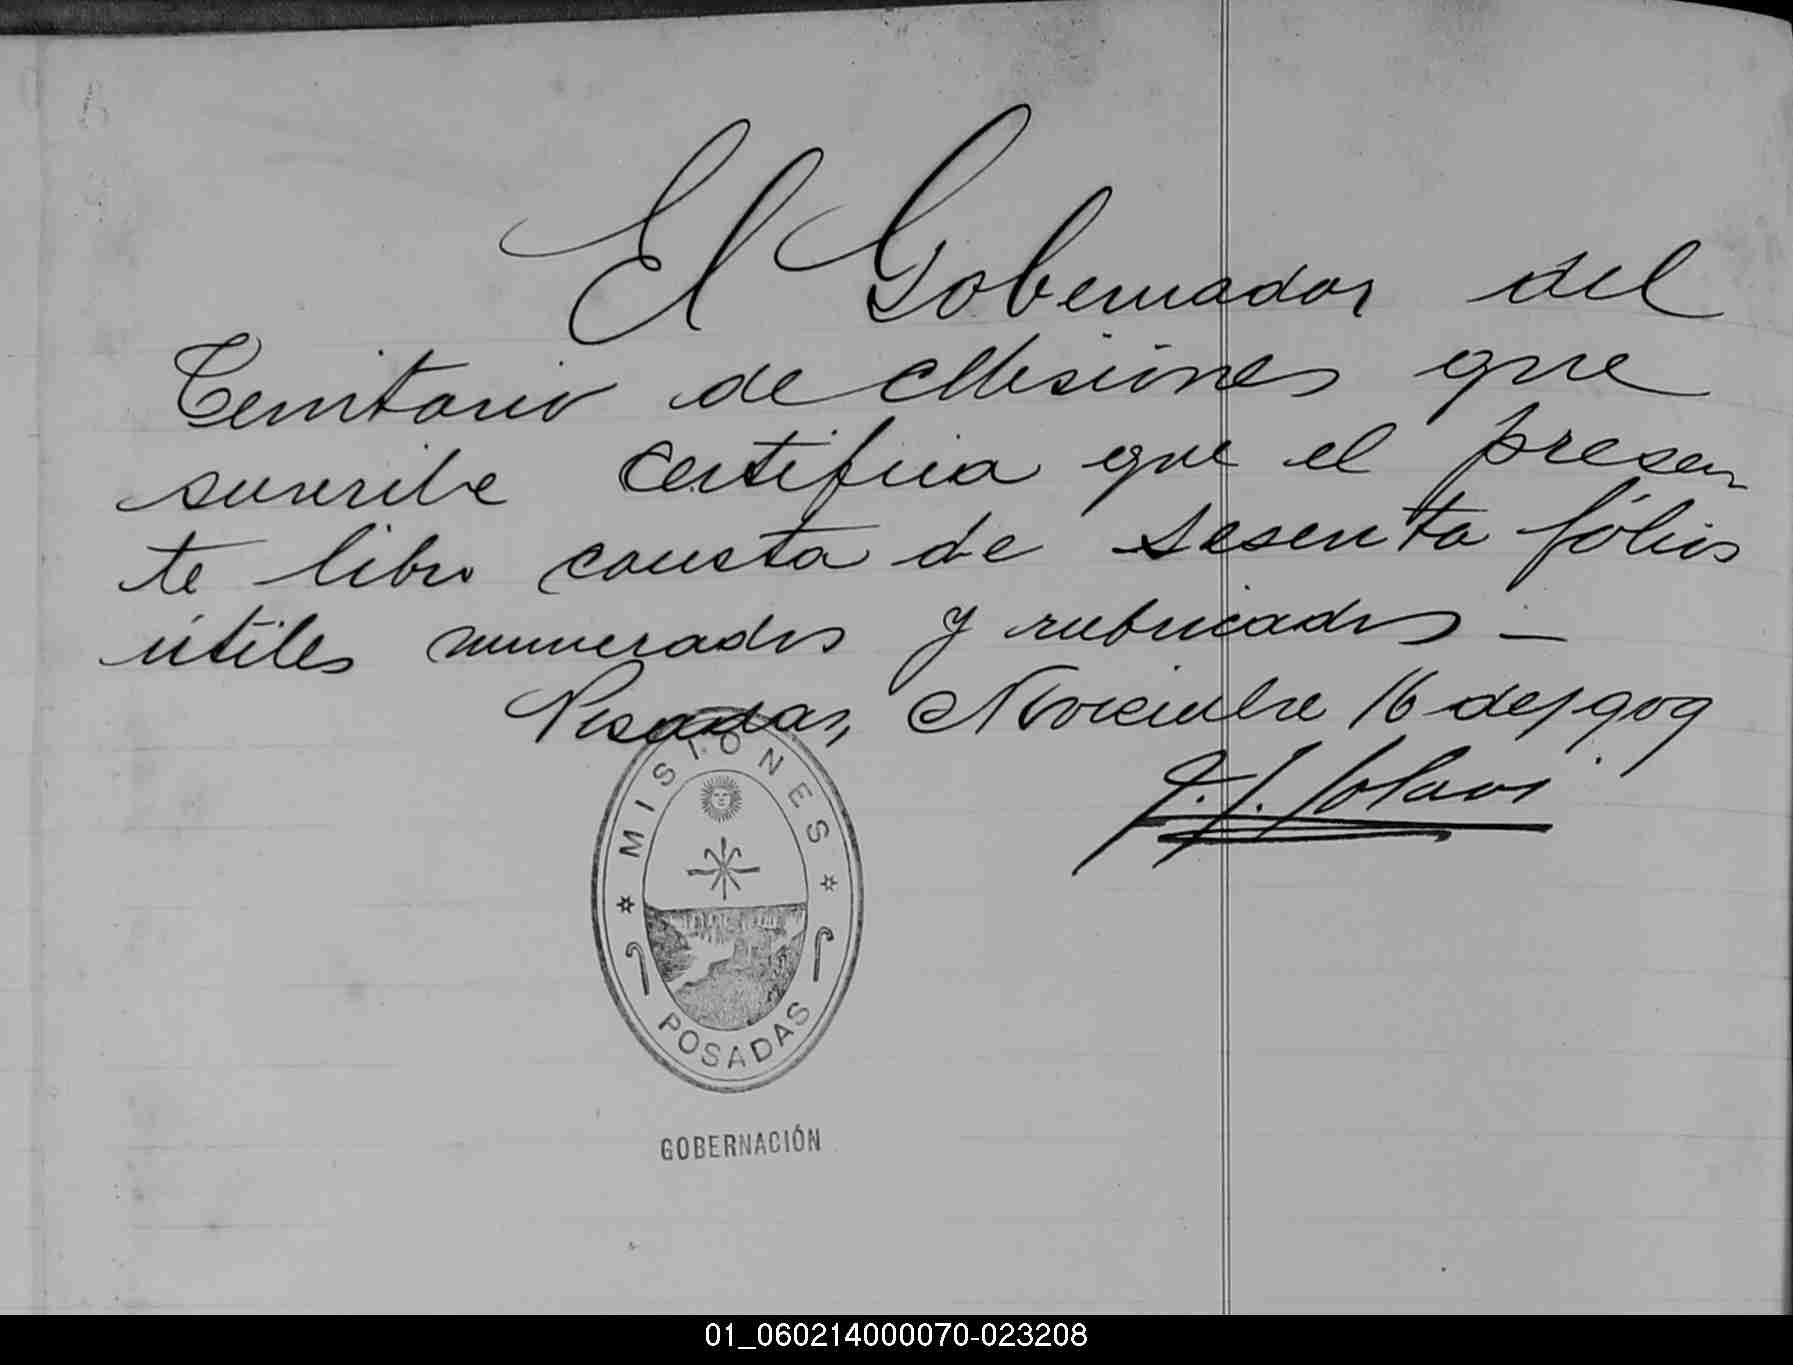 El Gobernador del
Territorio de Misiones que
suscribe certifica que el presen
te libro consta de sesenta fólios
útiles numerados y rubricados —
Posadas, Noviembre 16 de 1909
J. J. Solari
MISIONES
POSADAS
GOBERNACIÓN
01_060214000070-023208